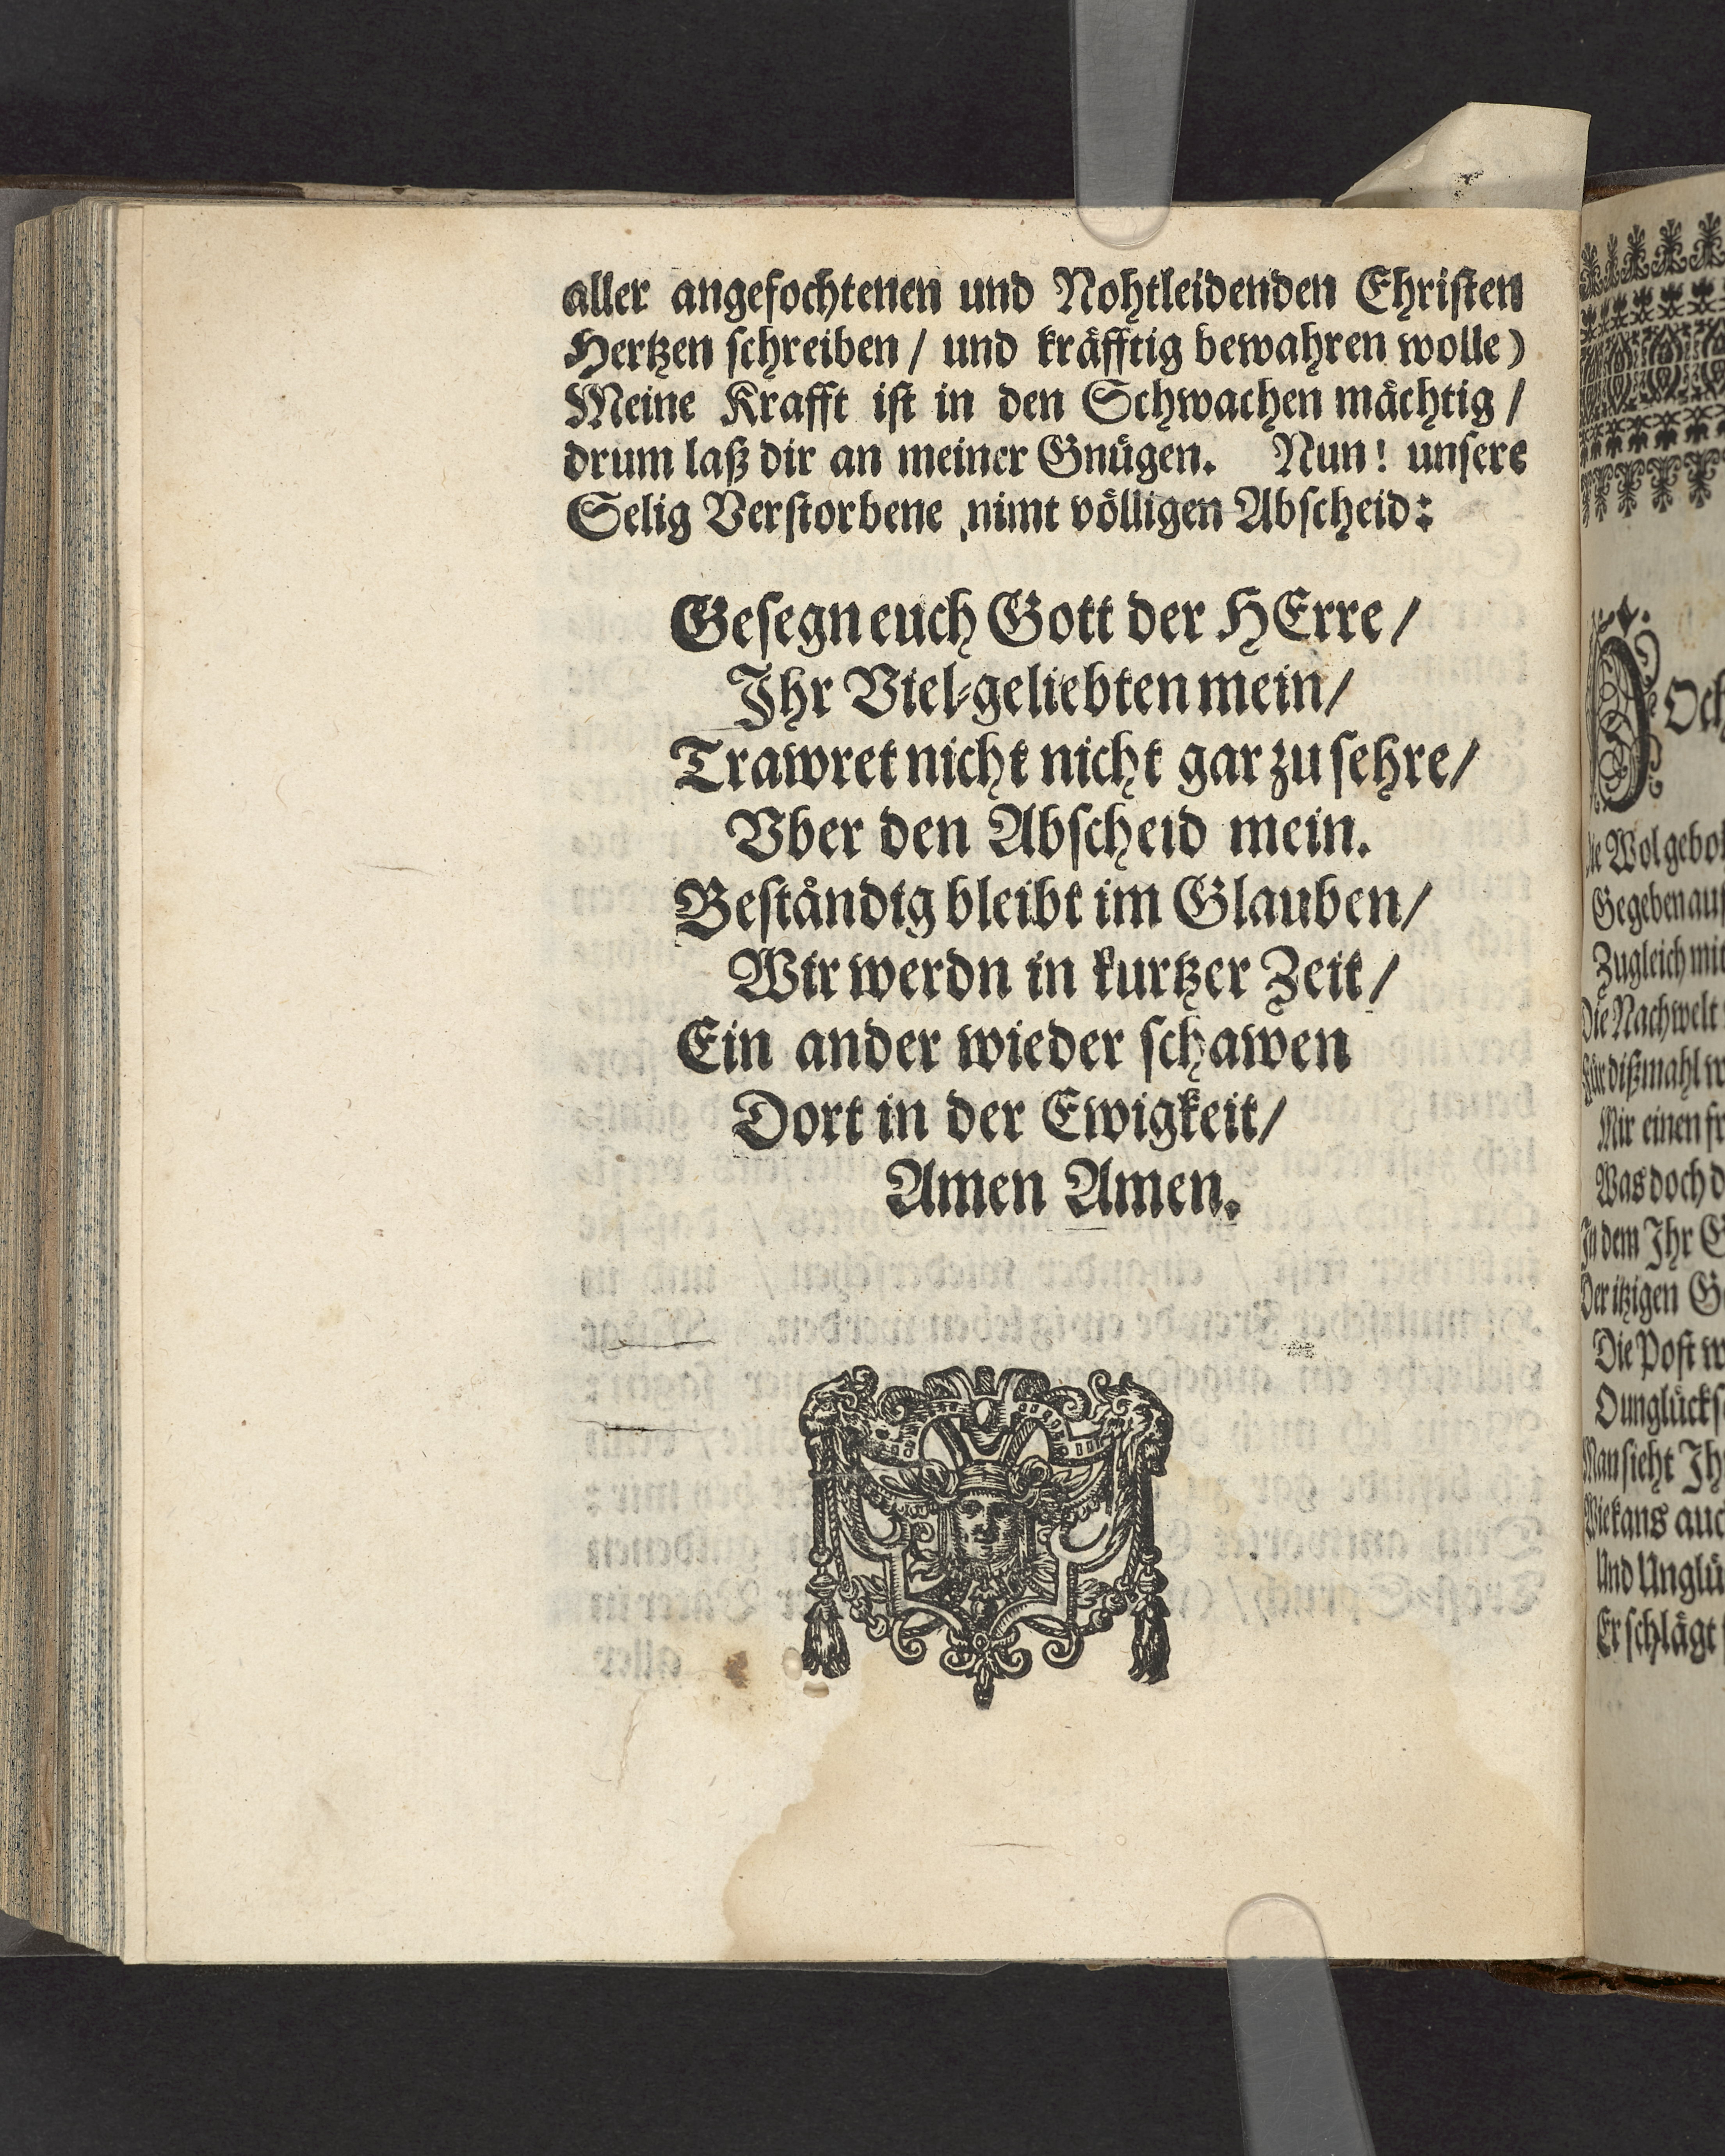 aller angefochtenen und Nohtleidenden Christen
Hertzen schreiben / und kräfftig bewahren wolle)
Meine Krafft ist in den Schwachen mächtig /
drum laß dir an meiner Gnügen. Nun! unsere
Selig Verstorbene nimt völligen Abscheid:
Gesegn euch Gott der HErre /
Ihr Viel-geliebten mein /
Trawret nicht nicht gar zu sehre /
Vber den Abscheid mein.
Beständig bleibt im Glauben /
Wir werdn in kurtzer Zeit /
Ein ander wieder schawen
Dort in der Ewigkeit /
Amen Amen.
Wolgebo
Gegeben auf
Zugleich mit
Die Nachwelt
Für dißmahl w
Mir einen fr
Was doch d
In dem Ihr E
Der itzigen G
Die Post w
O unglücks
Man sieht Ih
Wie kans auc
Und Unglü
Er schlägt